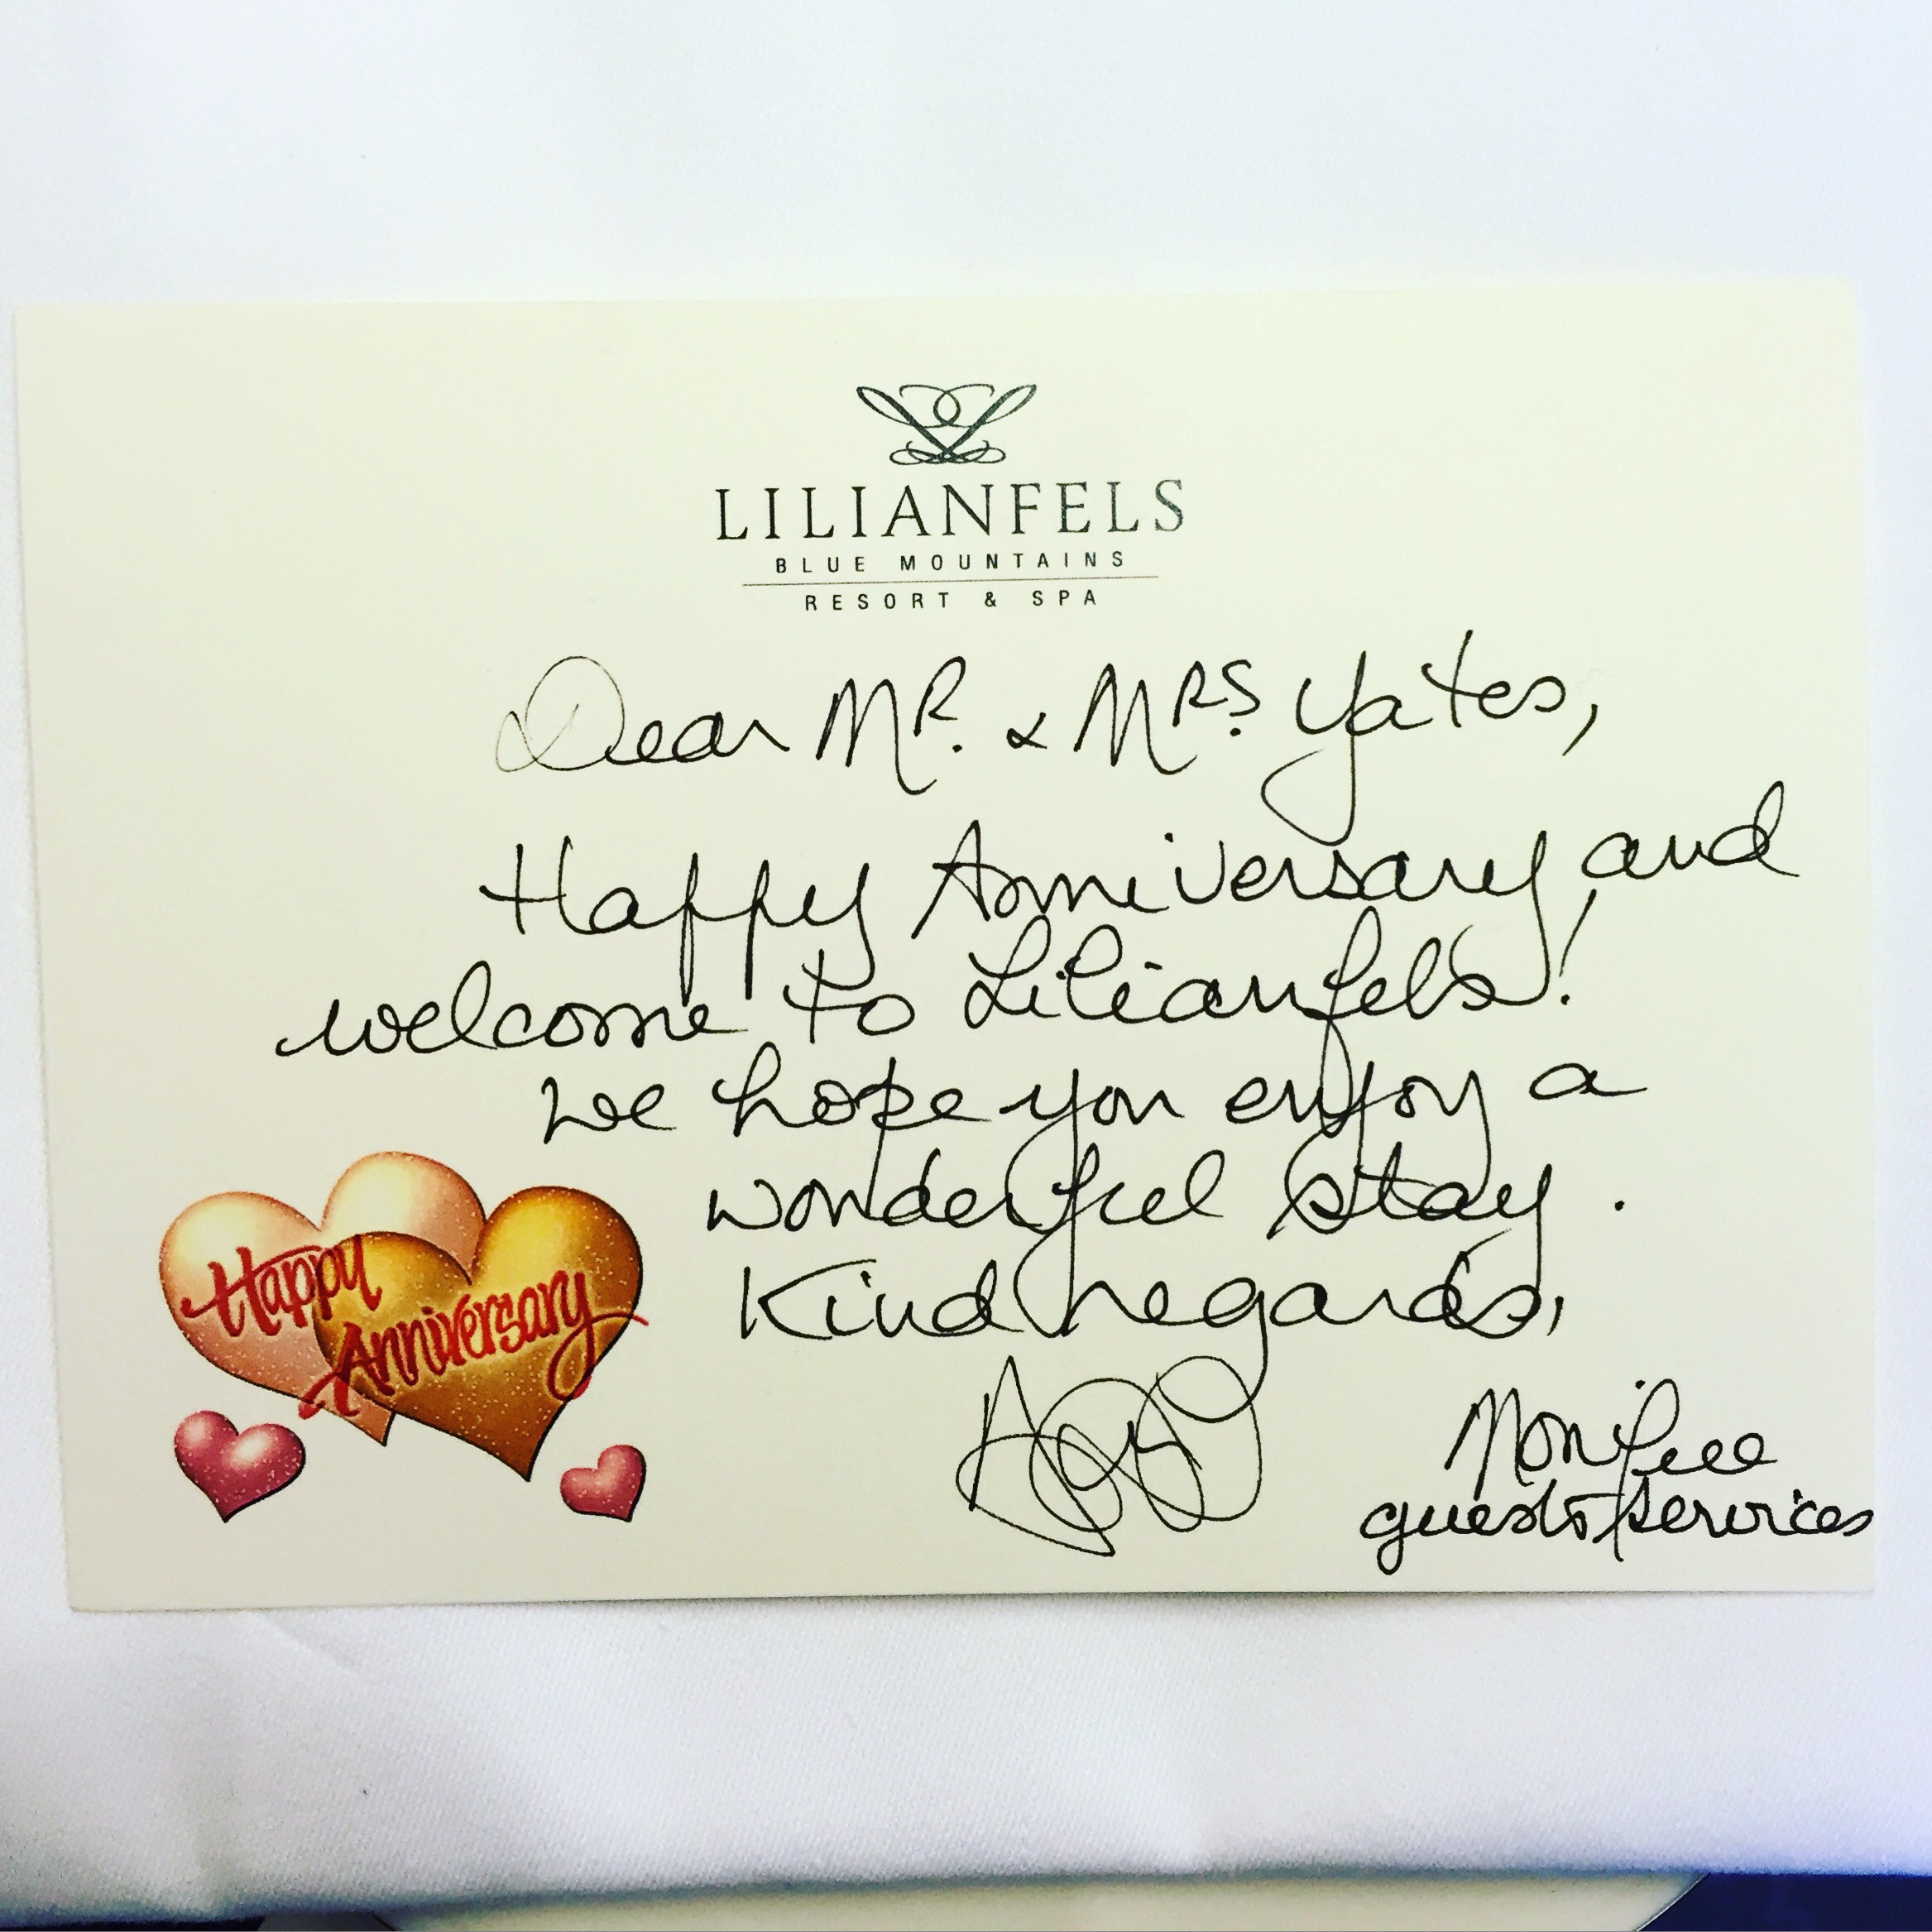 LILIANFELS
BLUE MOUNTAINS
RESORT & SPA
Dear Mr. & Mrs. Yates,
Happy Anniversary and
welcome to Lilianfels!
We hope you enjoy a
wonderful stay.
Kind regards,
guest services
Happy
Anniversary